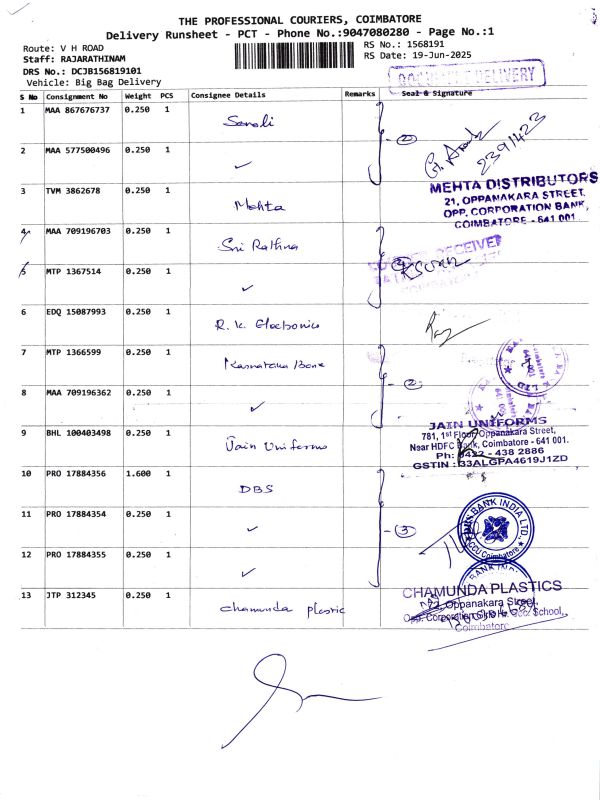 THE PROFESSIONAL COURIERS, COIMBATORE
Delivery Runsheet - PCT - Phone No.:9047080280 - Page No.:1
Route: V H ROAD
RS No.: 1568191
Staff: RAJARATHINAM
RS Date: 19-Jun-2025
DRS No.: DCJB156819101
Vehicle: Big Bag Delivery
DELIVERY
S No Consignment No Weight PCS Consignee Details Remarks Seal & Signature
1 MAA 867676737 0.250 1 Sonali
2391423
2 MAA 577500496 0.250 1 ✓
2
MEHTA DISTRIBUTORS
21, OPPANAKARA STREET,
OPP. CORPORATION BANK,
COIMBATORE - 641 001.
3 TVM 3862678 0.250 1 Mehta
4 MAA 709196703 0.250 1 Sri Rathna
RECEIVED
5 MTP 1367514 0.250 1 ✓
6 EDQ 15087993 0.250 1 R. K. Electronics
7 MTP 1366599 0.250 1 Karnataka Bank
8 MAA 709196362 0.250 1 ✓
2
9 BHL 100403498 0.250 1 Jain Uniforms
JAIN UNIFORMS
781, 1st Floor, Oppanakara Street,
Near HDFC Bank, Coimbatore - 641 001.
Ph: 0422 - 438 2886
GSTIN : 33ALGPA4619J1ZD
10 PRO 17884356 1.600 1 DBS
11 PRO 17884354 0.250 1 ✓
3
BANK INDIA LTD.,
CCU Coimbatore
12 PRO 17884355 0.250 1 ✓
BANK INDIA
13 JTP 312345 0.250 1 chamunda plastic
CHAMUNDA PLASTICS
72, Oppanakara Street,
Opp. Corporation Girls Hr. Sec. School,
Coimbatore